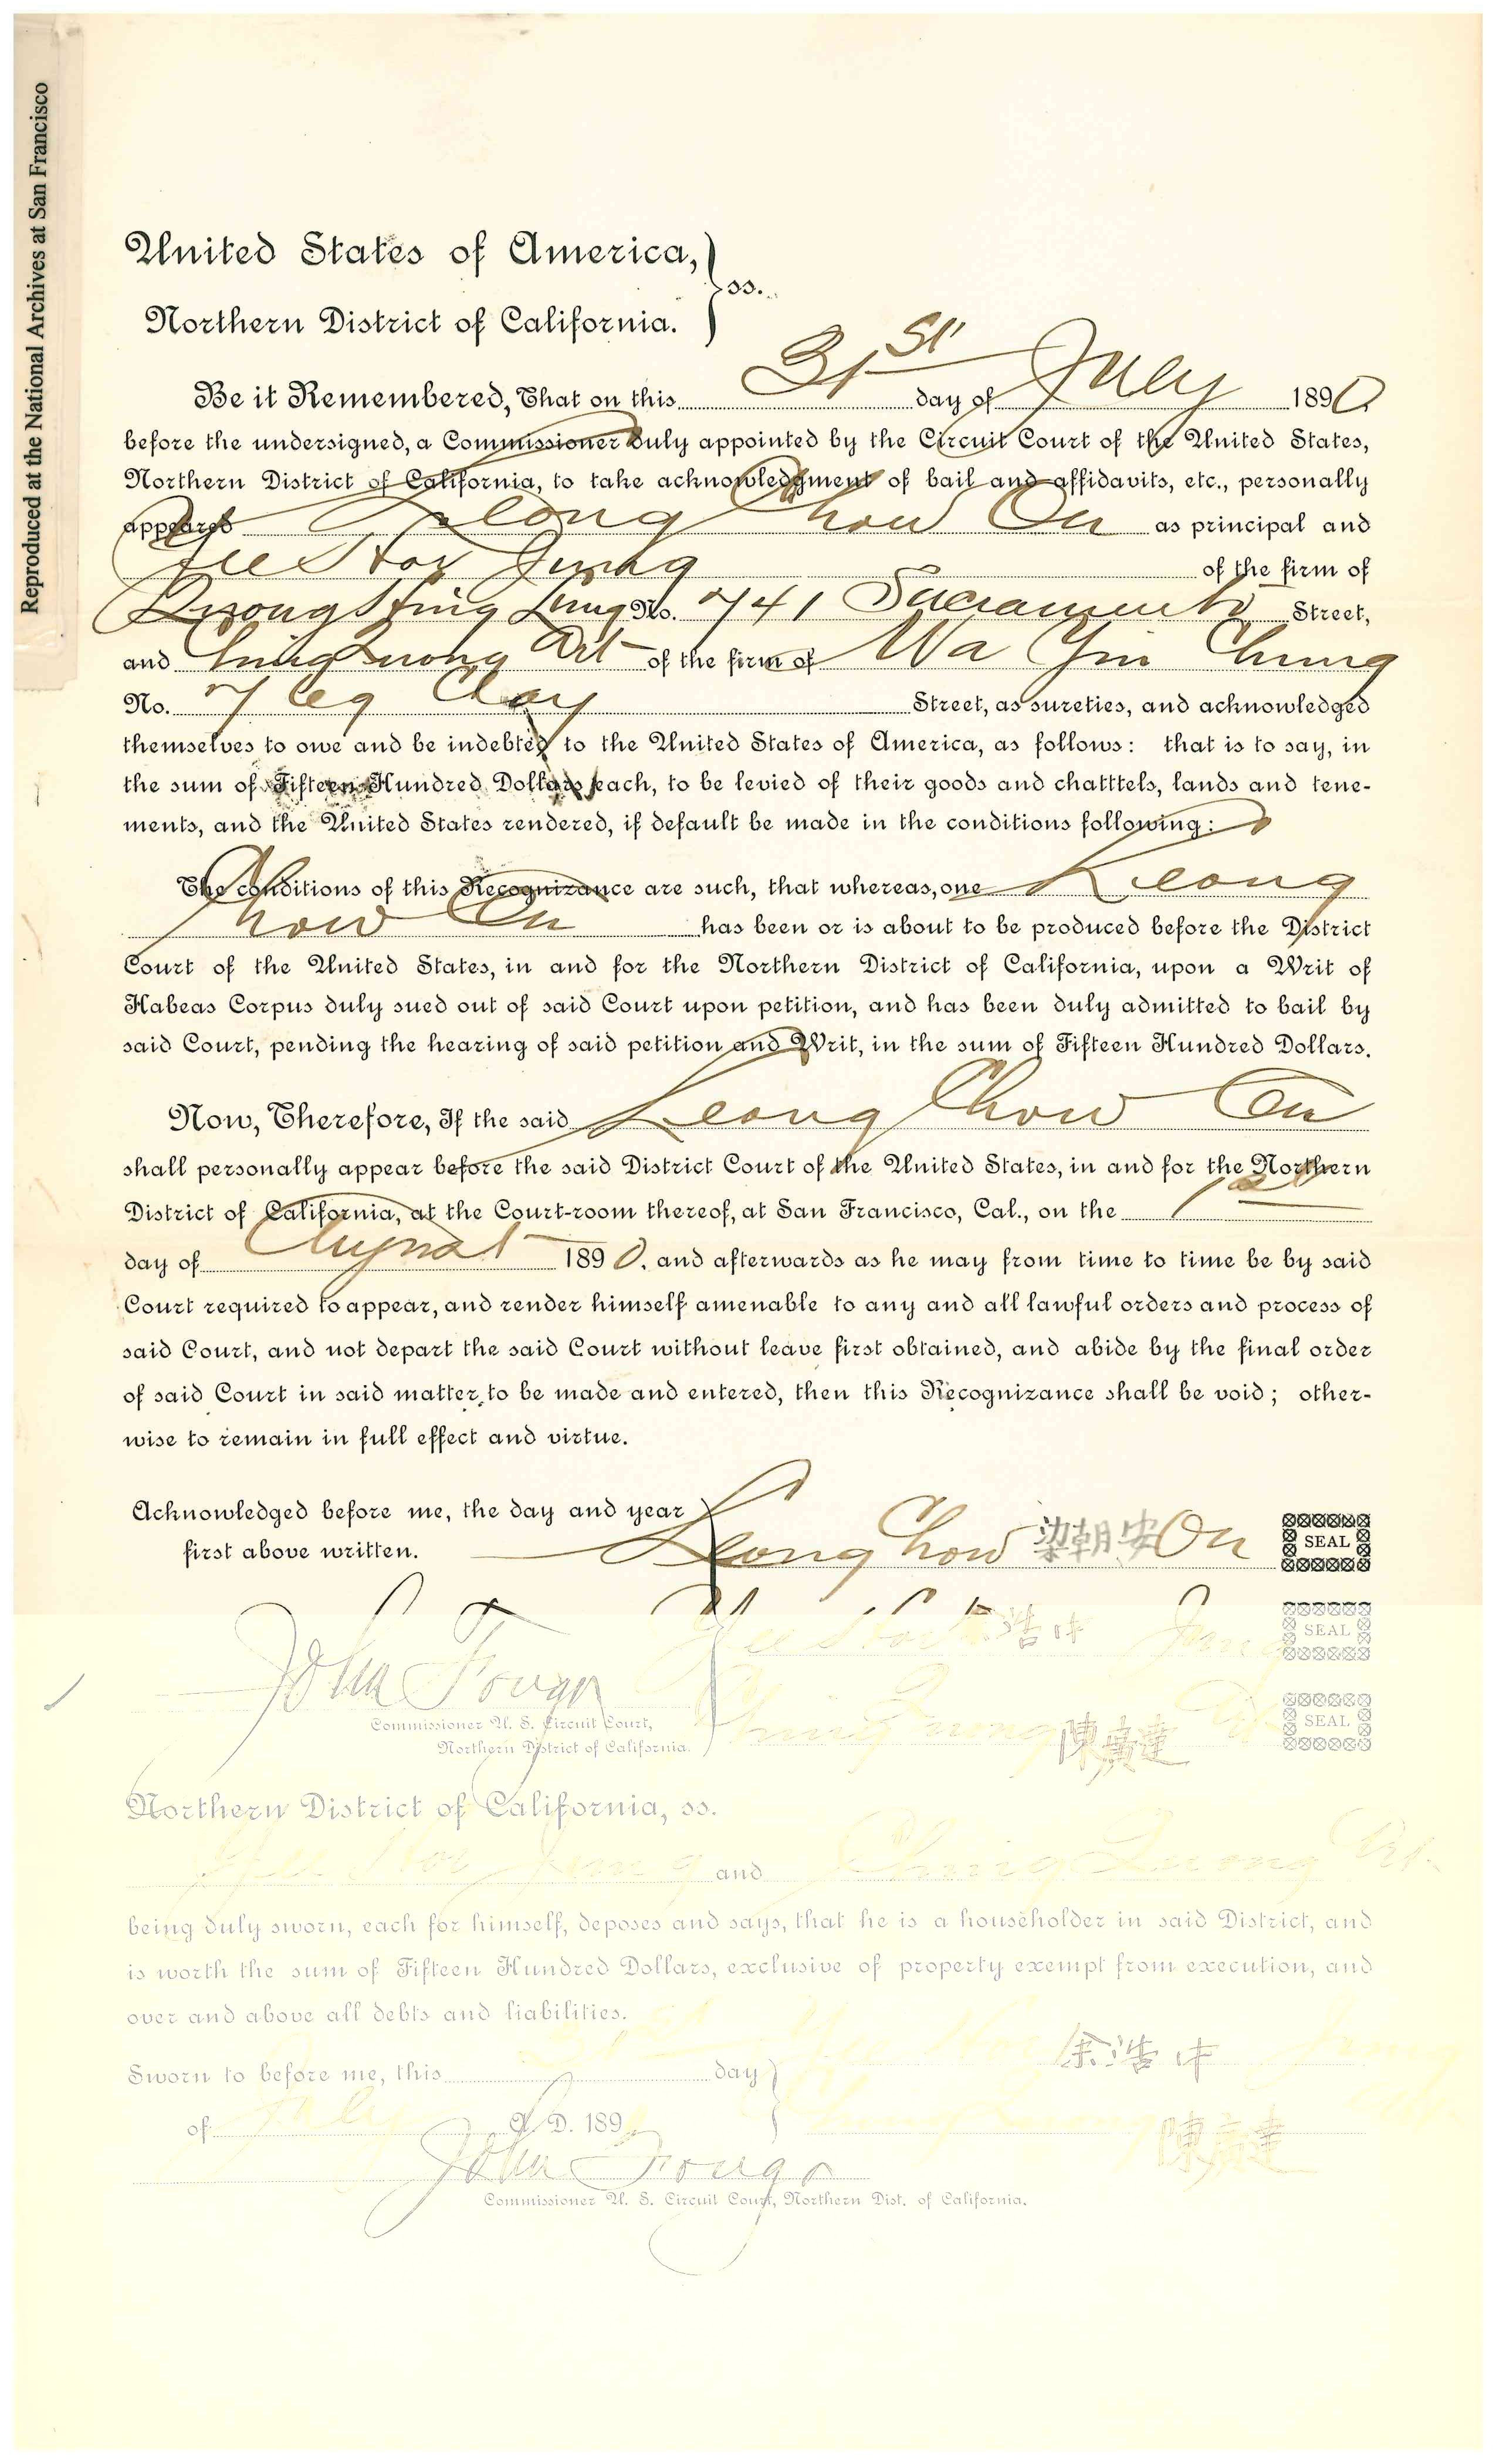 Reproduced at the National Archives at San Francisco
United States of America,
Northern District of California. } ss.
Be it Remembered, That on this 31st day of July 1890
before the undersigned, a Commissioner duly appointed by the Circuit Court of the United States,
Northern District of California, to take acknowledgment of bail and affidavits, etc., personally
appeared Leong Chow On as principal and
Yee Hor Jung of the firm of
Quong Hing Lung No. 741 Sacramento Street,
and Ching Quong Art of the firm of Wa Yin Chung
No. 7 Clay Street, as sureties, and acknowledged
themselves to owe and be indebted to the United States of America, as follows: that is to say, in
the sum of Fifteen Hundred Dollars each, to be levied of their goods and chatttels, lands and tene-
ments, and the United States rendered, if default be made in the conditions following:
The conditions of this Recognizance are such, that whereas, one Leong
Chow On has been or is about to be produced before the District
Court of the United States, in and for the Northern District of California, upon a Writ of
Habeas Corpus duly sued out of said Court upon petition, and has been duly admitted to bail by
said Court, pending the hearing of said petition and Writ, in the sum of Fifteen Hundred Dollars.
Now, Therefore, If the said Leong Chow On
shall personally appear before the said District Court of the United States, in and for the Northern
District of California, at the Court-room thereof, at San Francisco, Cal., on the 1st
day of August 1890. and afterwards as he may from time to time be by said
Court required to appear, and render himself amenable to any and all lawful orders and process of
said Court, and not depart the said Court without leave first obtained, and abide by the final order
of said Court in said matter, to be made and entered, then this Recognizance shall be void; other-
wise to remain in full effect and virtue.
Acknowledged before me, the day and year
first above written. Leong Chow 梁朝安 On SEAL
Yee Hor 浩 Jung SEAL
John Fouga
Commissioner U. S. Circuit Court, Ching Quong 陳廣達 Art SEAL
Northern District of California.
Northern District of California, ss.
Yee Hor Jung and Ching Quong Art
being duly sworn, each for himself, deposes and says, that he is a householder in said District, and
is worth the sum of Fifteen Hundred Dollars, exclusive of property exempt from execution, and
over and above all debts and liabilities.
Sworn to before me, this day Yee Hor 余浩 Jung
of July A. D. 189 陳廣達
John Fouga
Commissioner U. S. Circuit Court, Northern Dist. of California.